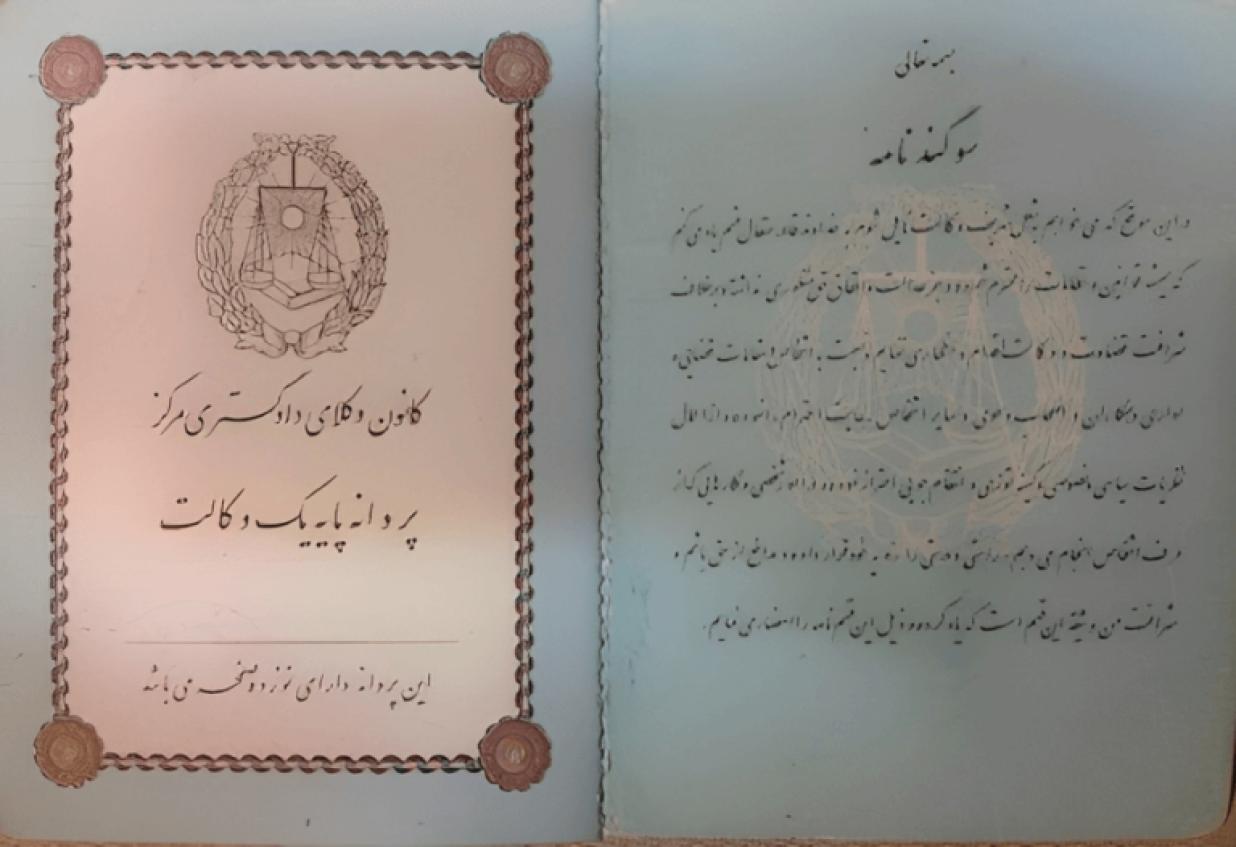 کانون وکلای دادگستری مرکز
پروانه پایه یک وکالت
این پروانه دارای نوزده صفحه می باشد
۱
بسمه تعالی
سوگند نامه
در این موقع که می خواهم بشغل شریف وکالت نایل شوم به خداوند قادر متعال قسم یاد می کنم
که همیشه قوانین و نظامات را محترم شمرده و جز عدالت و احقاق حق منظوری نداشته و برخلاف
شرافت قضاوت و وکالت اقدام و اظهاری ننمایم و نسبت به اشخاص و مقامات قضایی و
اداری و همکاران و اصحاب دعوی و سایر اشخاص رعایت احترام را نموده و از اعمال
نظریات سیاسی و خصوصی و کینه توزی و انتقام جویی احتراز نموده و در امور شخصی و کارهایی که از
طرف اشخاص انجام می دهم راستی و درستی را رویه خود قرار داده و مدافع از حق باشم و
شرافت من وثیقه این قسم است که یاد کرده و ذیل این قسم نامه را امضاء می نمایم.